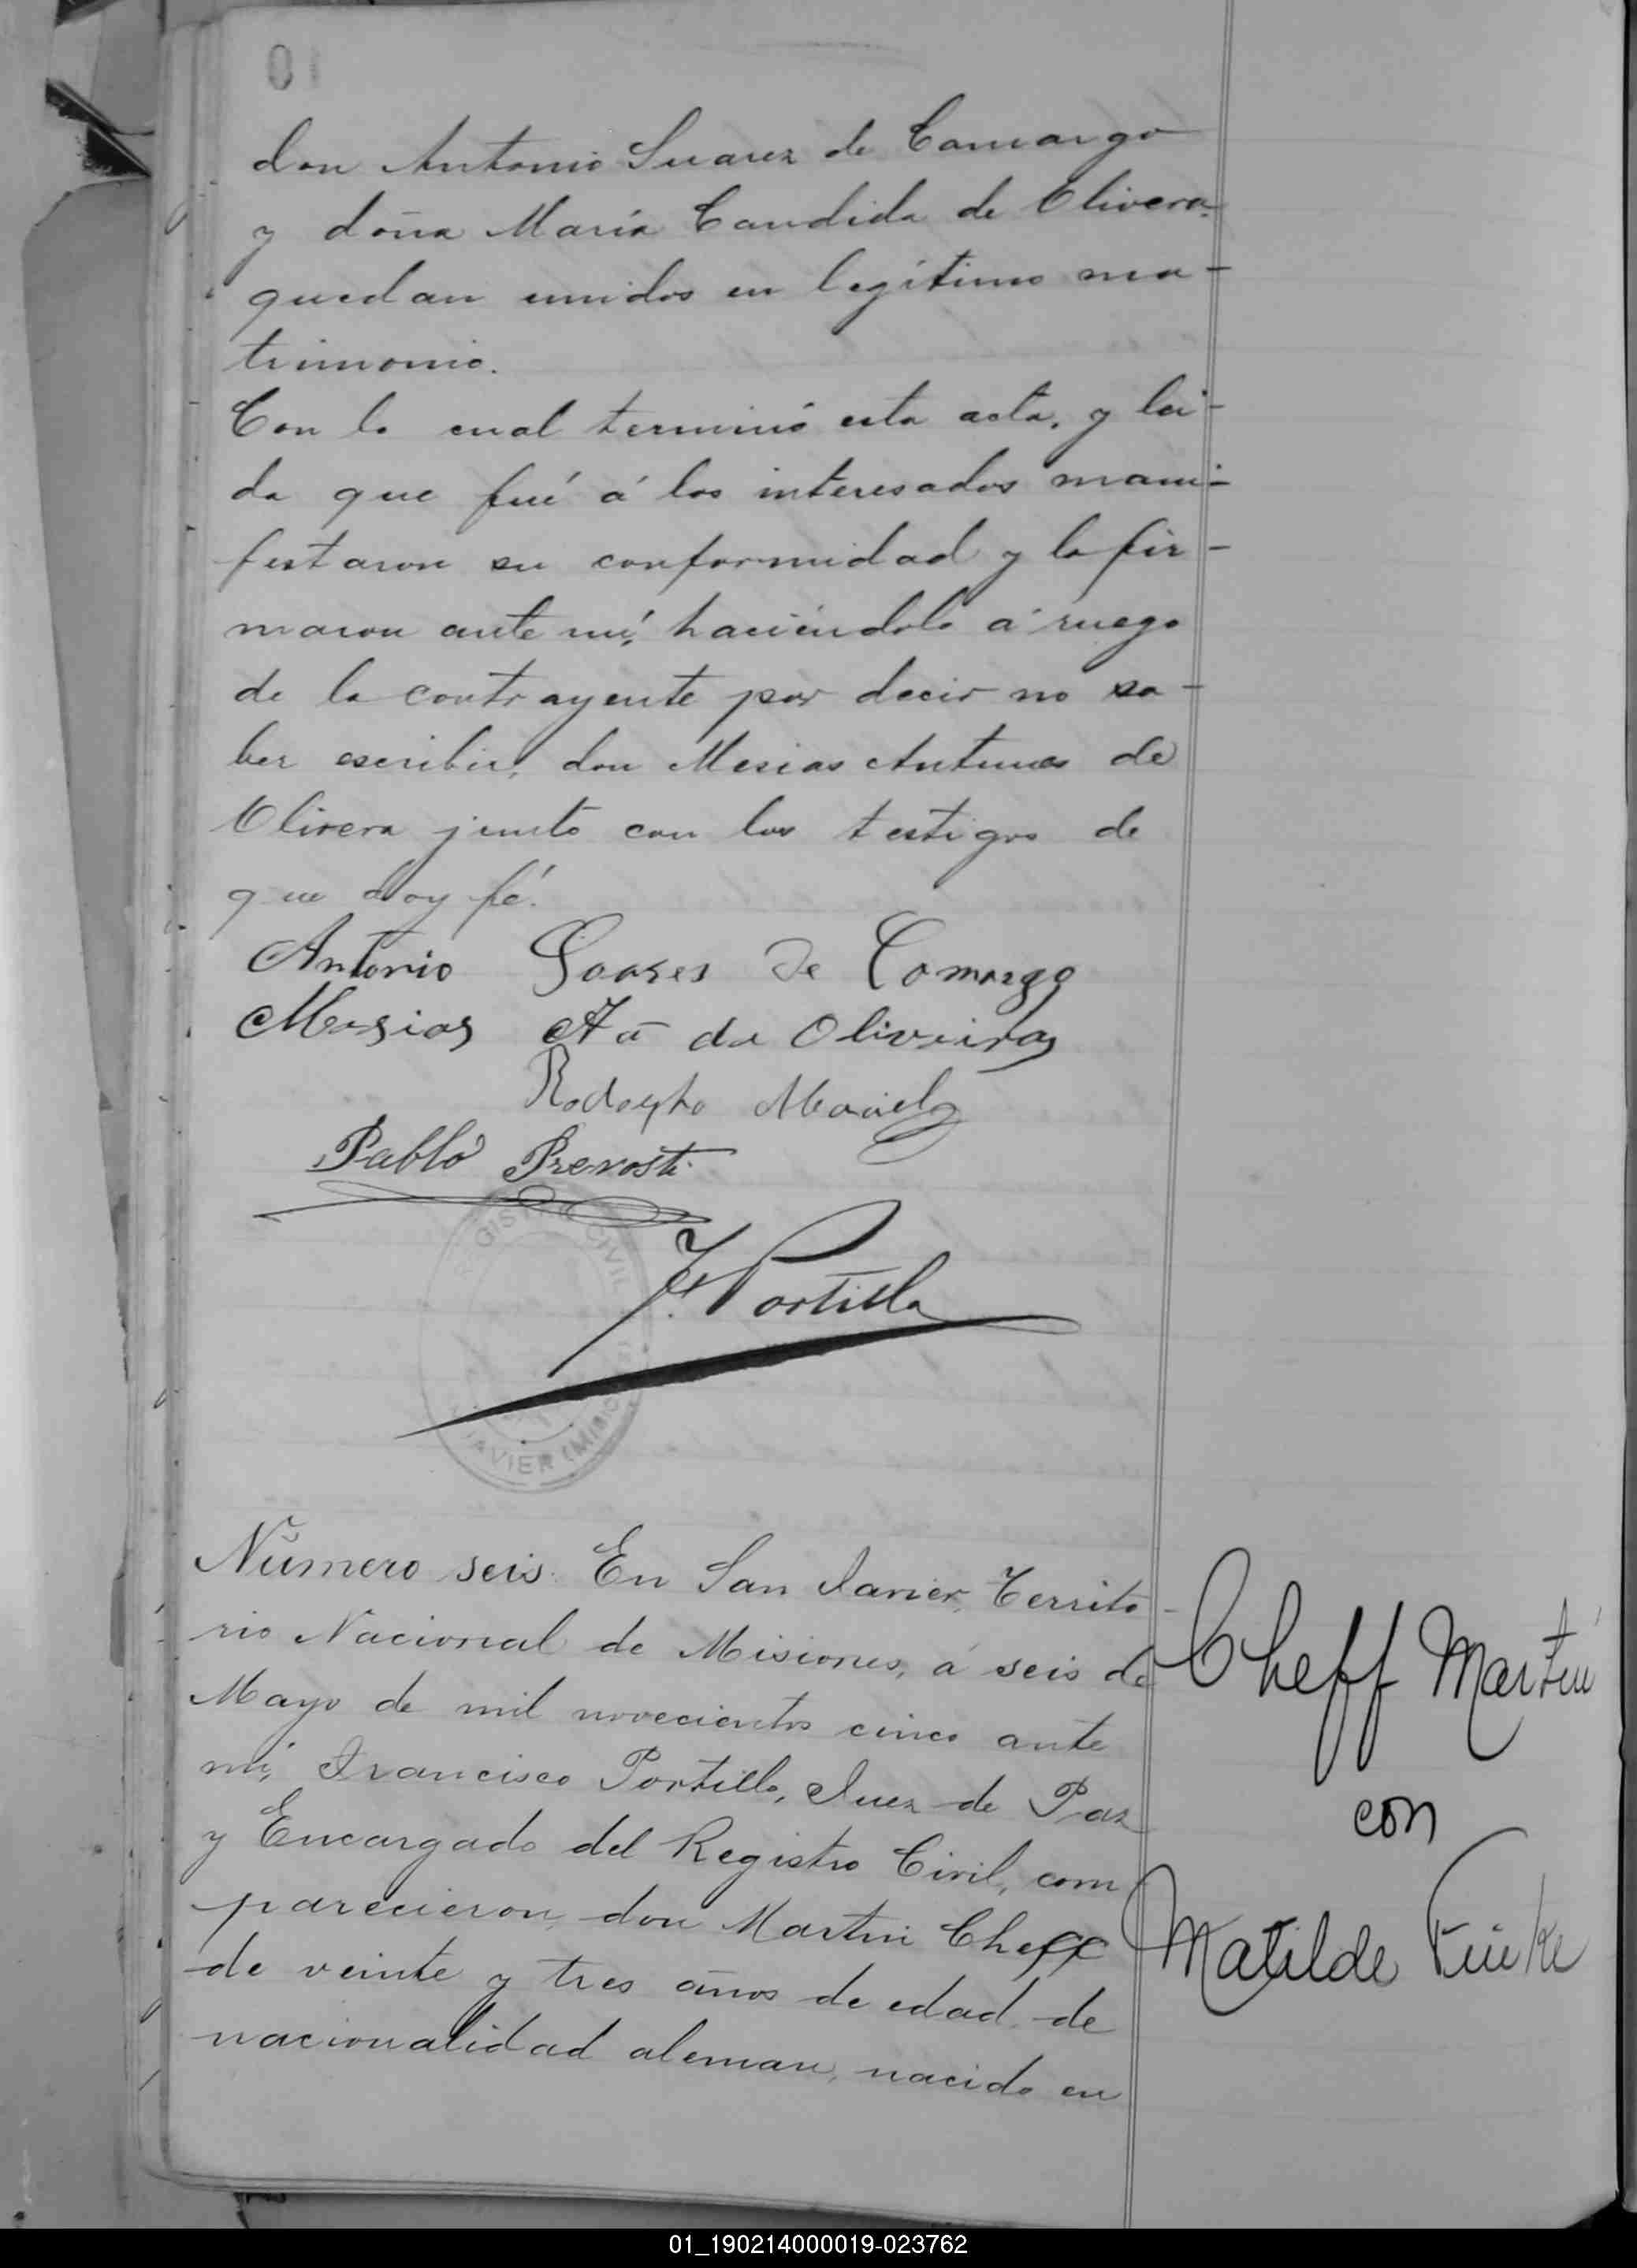 01
don Antonio Suarez de Camargo
y doña María Candida de Olivera
quedan unidos en legítimo ma-
trimonio.
Con lo cual terminó esta acta, y lei-
da que fué á los interesados mani-
festaron su conformidad y la fir-
maron ante mí, haciéndolo á ruego
de la contrayente por decir no sa-
ber escribir, don Mesias Antunes de
Olivera junto con los testigos de
que doy fé.
Antonio Soares de Comargo
Mesias de Oliveira
Rodolpho Maciel
Pablo Prevosti
F. Portilla
REGISTRO CIVIL
JAVIER (MISIONES)
Número seis. En San Javier, Territo-
rio Nacional de Misiones, á seis de
Mayo de mil novecientos cinco ante
mí, Francisco Portilla, Juez de Paz
y Encargado del Registro Civil, com
parecieron, don Martin Cheff
de veinte y tres años de edad, de
nacionalidad aleman, nacido en
Cheff Martin
con
Matilde
01_190214000019-023762